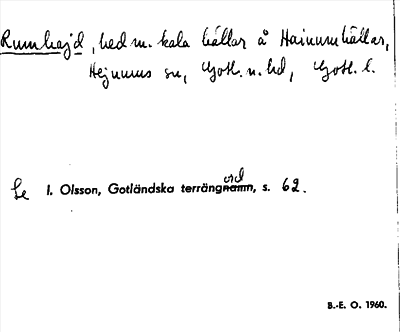 Rumhajd, hed m. kala hällar å Hainumhällar,
Hejnums sn, Gotl. n. hd, Gotl. l.
Se I. Olsson, Gotländska terrängord, s. 62.
B.-E. O. 1960.